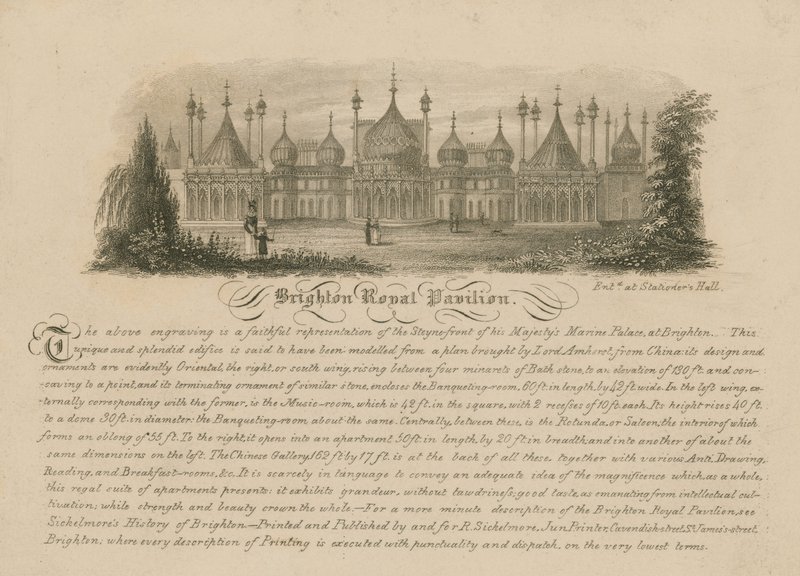 Entd. at Stationer's Hall.
Brighton Royal Pavilion.
The above engraving is a faithful representation of the Steyne-front of his Majesty's Marine Palace, at Brighton. This
unique and splendid edifice is said to have been modelled from a plan brought by Lord Amherst, from China: its design and
ornaments are evidently Oriental, the right, or south wing, rising between four minarets of Bath stone, to an elevation of 130 ft. and con-
caving to a point, and its terminating ornament of similar stone, encloses the Banqueting-room, 60 ft. in length, by 42 ft. wide. In the left wing, ex-
ternally corresponding with the former, is the Music-room, which is 42 ft. in the square, with 2 recesses of 10 ft. each. Its height rises 40 ft.
to a dome 30 ft. in diameter: the Banqueting-room about the same. Centrally, between these, is the Rotunda, or Saloon, the interior of which
forms an oblong of 55 ft. To the right, it opens into an apartment 50 ft. in length, by 20 ft. in breadth, and into another of about the
same dimensions on the left. The Chinese Gallery, 162 ft. by 17 ft. is at the back of all these, together with various Anti, Drawing,
Reading, and Breakfast-rooms, &c. It is scarcely in language to convey an adequate idea of the magnificence which, as a whole,
this regal suite of apartments presents: it exhibits grandeur, without tawdriness; good taste, as emanating from intellectual cul-
tivation; while strength and beauty crown the whole.—For a more minute description of the Brighton Royal Pavilion, see
Sickelmore's History of Brighton.—Printed and Published by and for R. Sickelmore, Jun. Printer, Cavendish-street, St. James's-street,
Brighton; where every description of Printing is executed with punctuality and dispatch, on the very lowest terms.